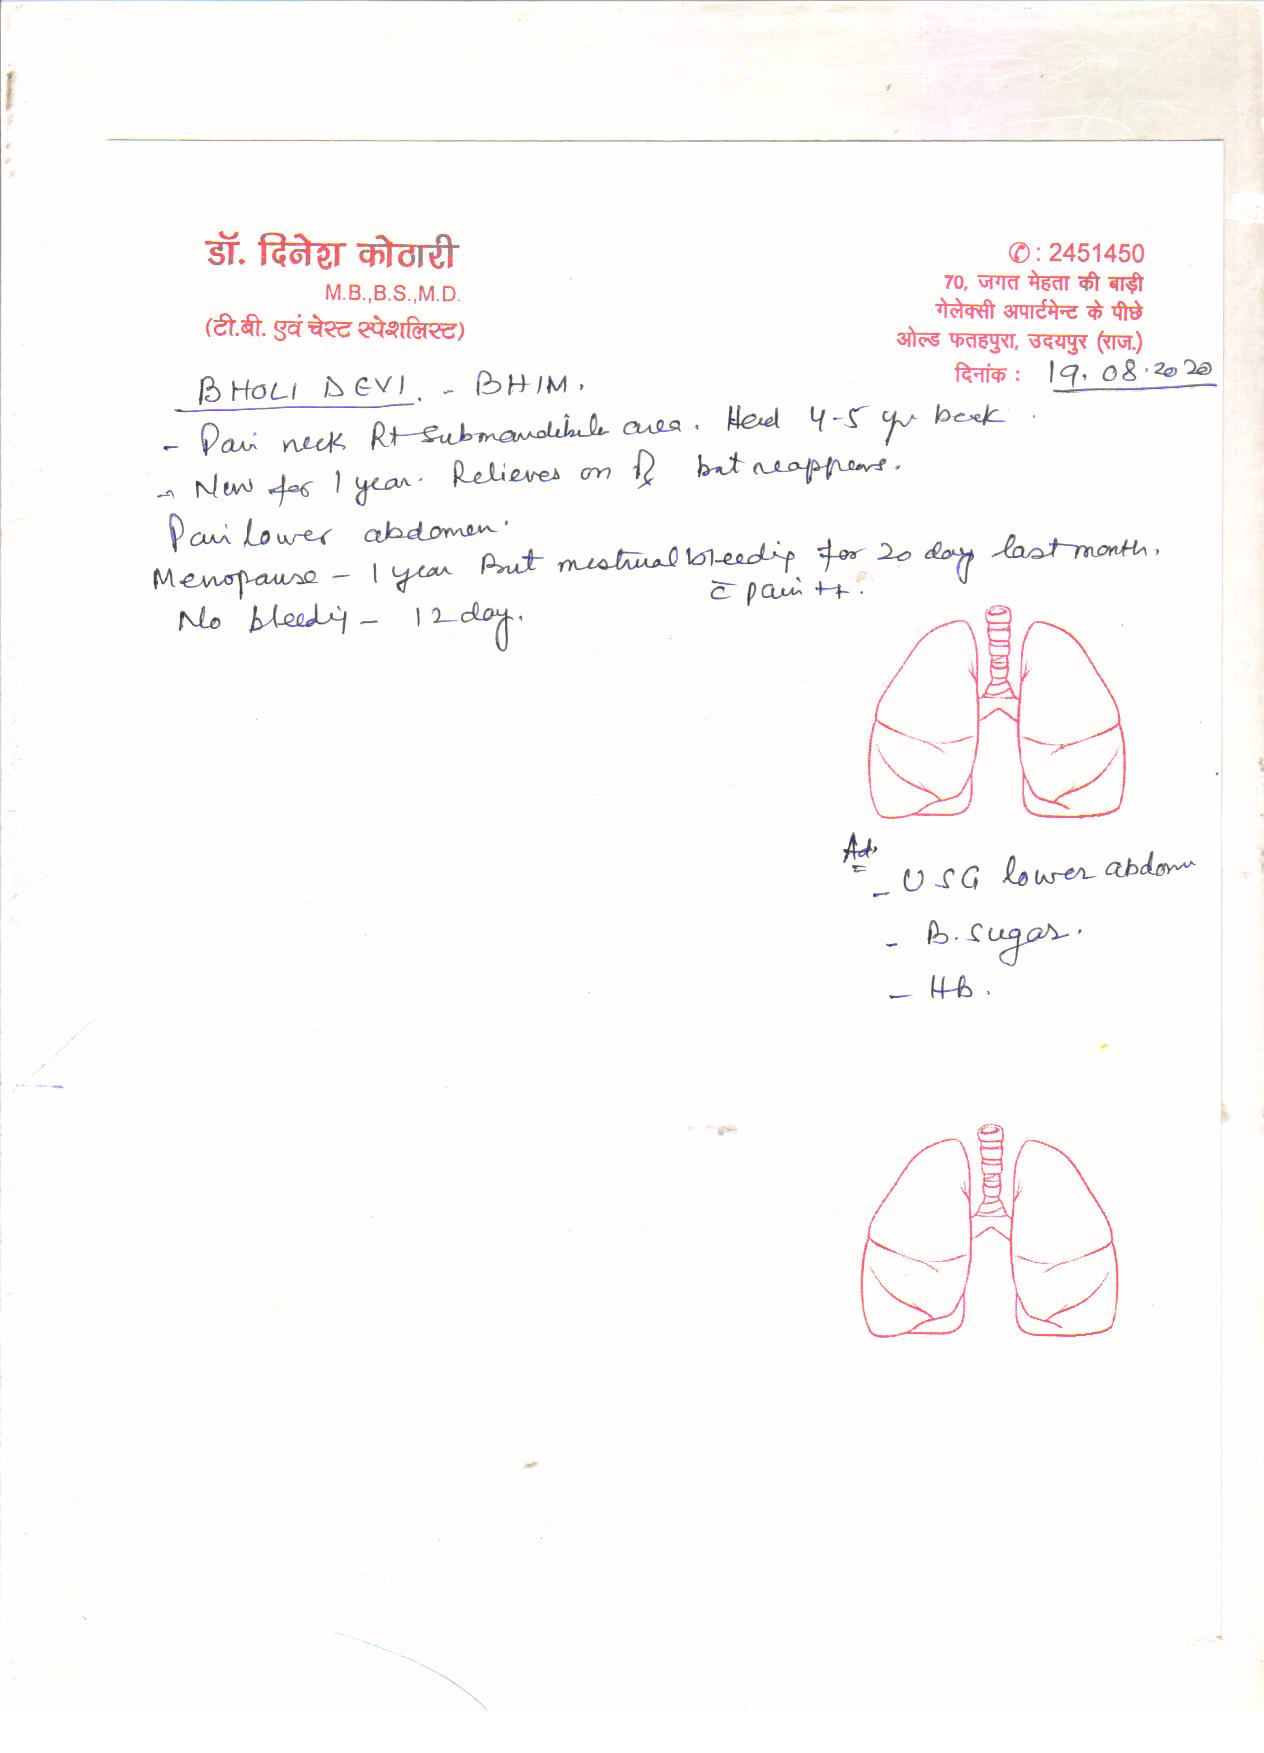 डॉ. दिनेश कोठारी
M.B.,B.S.,M.D.
(टी.बी. एवं चेस्ट स्पेशलिस्ट)
✆ : 2451450
70, जगत मेहता की बाड़ी
गेलेक्सी अपार्टमेन्ट के पीछे
ओल्ड फतहपुरा, उदयपुर (राज.)
दिनांक : 19.08.2020
BHOLI DEVI. - BHIM.
- Pain neck Rt Submandibular area. Had 4-5 yr back.
- Now for 1 year. Relieves on ℞ but reappears.
Pain lower abdomen.
Menopause - 1 year But mestrual bleeding for 20 day last month.
c̄ pain ++.
No bleedig - 12 day.
Ad.
- USG lower abdomen
- B. Sugar.
- HB.